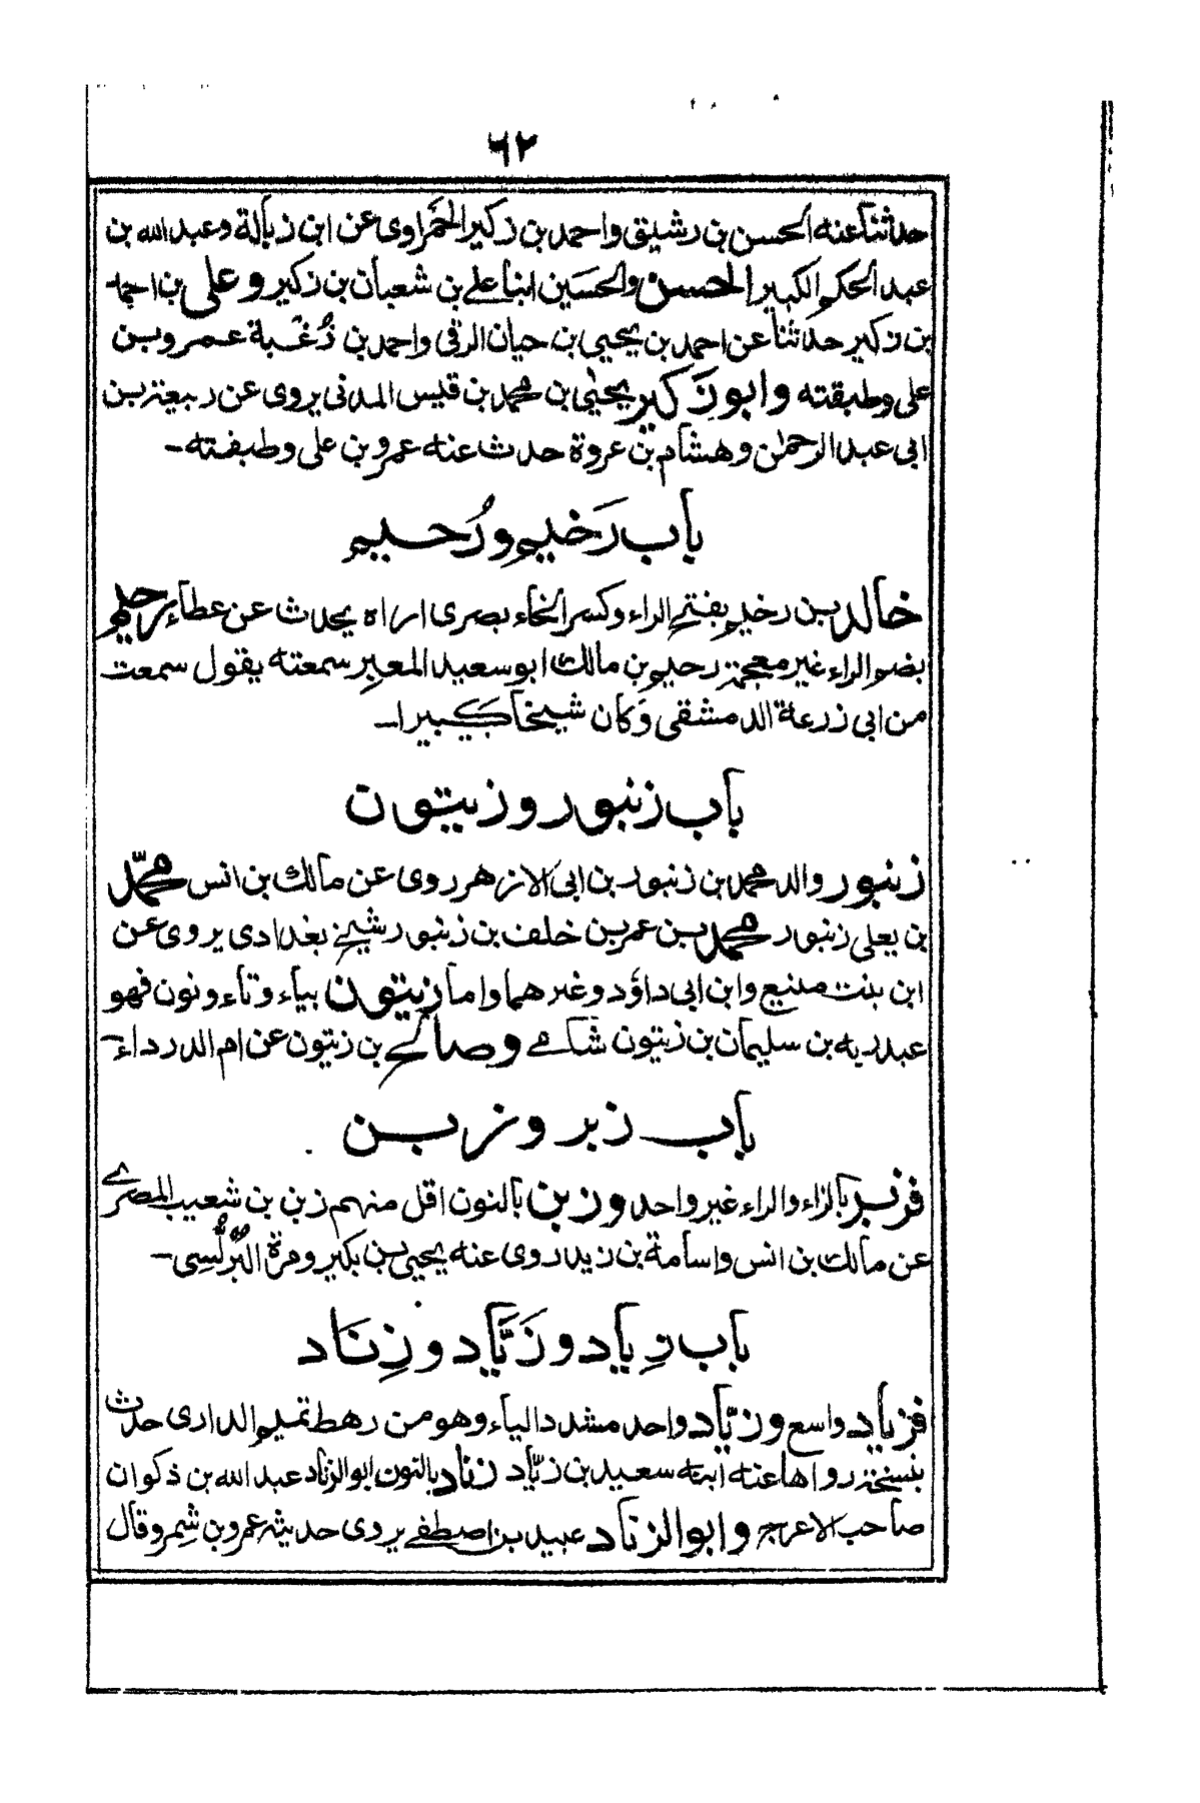 ٦٢
حدثنا عنه الحسن بن رشيق واحمد بن زكير الحَمراوى عن ابن زبالة وعبد الله بن
عبد الحكم الكبير الحسن والحسَين ابنا على بن شعبان بن زكير و على بن احمد
بن زكير حدثنا عن احمد بن يحيى بن حيان الرقى واحمد بن زُغْبة عمرو بن
على وطبقته وابو زَكير يحيٰى بن محمد بن قيس المدنى يروى عن ربيعة بن
ابى عبد الرحمٰن وهشام بن عروة حدث عنه عمرو بن على وطبقته ـ
باب رَخيم و رُحيم
خالد بن رخيم بفتح الراء وكسر الخاء بصرى اراه يحدث عن عطاء رحيم
بضم الراء غير معجمة رحيم بن مالك ابو سعيد المعبر سمعته يقول سمعت
من ابى زرعة الدمشقى وَكان شيخا كبيرا ـ
باب زنبور و زيتون
زنبور والد محمد بن زنبور بن ابى الازهر روى عن مالك بن انس محمّد
بن يعلى زنبور محمد بن عمر بن خلف بن زنبور شيخ بغدادى يروى عن
ابن بنت منيع وابن ابى داؤد وغيرهما واما زيتون بياء وتاء ونون فهو
عبد ربه بن سليمان بن زيتون شامے وصالح بن زيتون عن ام الدرداء ـ
باب زبر و زبن
فزبر بالزاء والراء غير واحد وزبن بالنون اقل منهم زبن بن شعيب المصرے
عن مالك بن انس واسامة بن زيد روى عنه يحيى بن بكير ومرة البُرلُّسِى ـ
باب زِياد و زَيَّاد و زِنَاد
فزياد واسع وزيّاد واحد مشدد الياء وهو من رهط تميم الدارى حدث
بنسخة رواها عنه ابنه سعيد بن زيّاد زناد بالنون ابو الزناد عبد الله بن ذكوان
صاحب الاعرج و ابو الزناد عبيد بن اصطفے يروى حديثه عمرو بن شِمر وقال